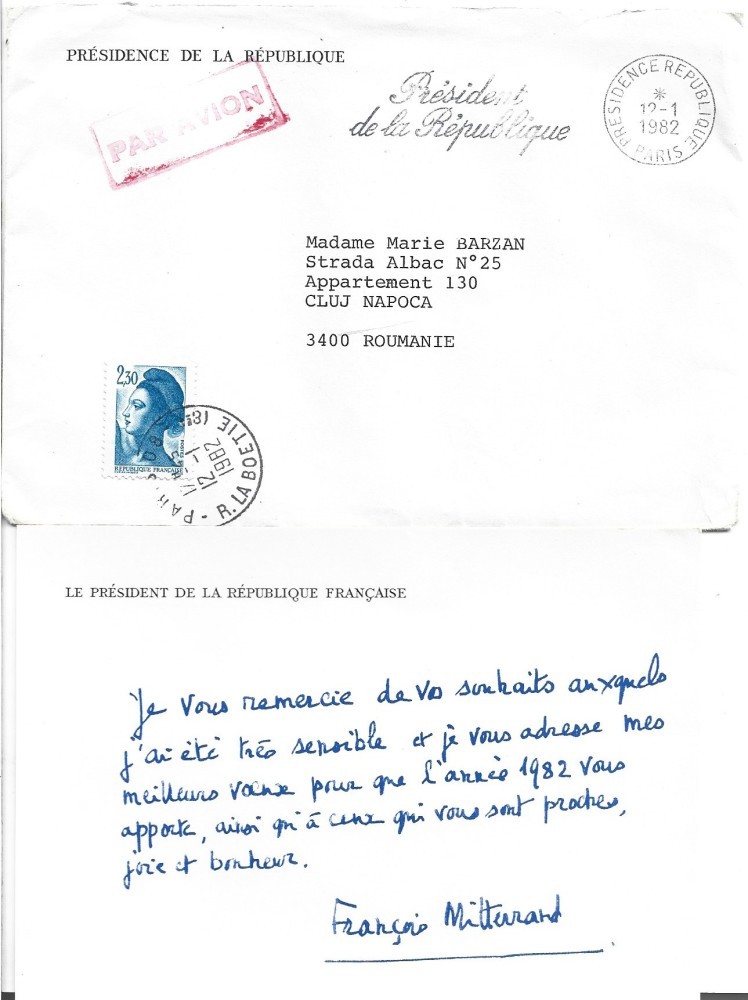 PRÉSIDENCE DE LA RÉPUBLIQUE
PAR AVION
Président
de la République
PRESIDENCE REPUBLIQUE
*
12-1
1982
PARIS
Madame Marie BARZAN
Strada Albac N°25
Appartement 130
CLUJ NAPOCA
3400 ROUMANIE
2,30
REPUBLIQUE FRANÇAISE
R. LA BOETIE (8e)
12-1
1982
LE PRÉSIDENT DE LA RÉPUBLIQUE FRANÇAISE
Je vous remercie de vos souhaits auxquels
j'ai été très sensible et je vous adresse mes
meilleurs vœux pour que l'année 1982 vous
apporte, ainsi qu'à ceux qui vous sont proches,
joie et bonheur.
François Mitterrand